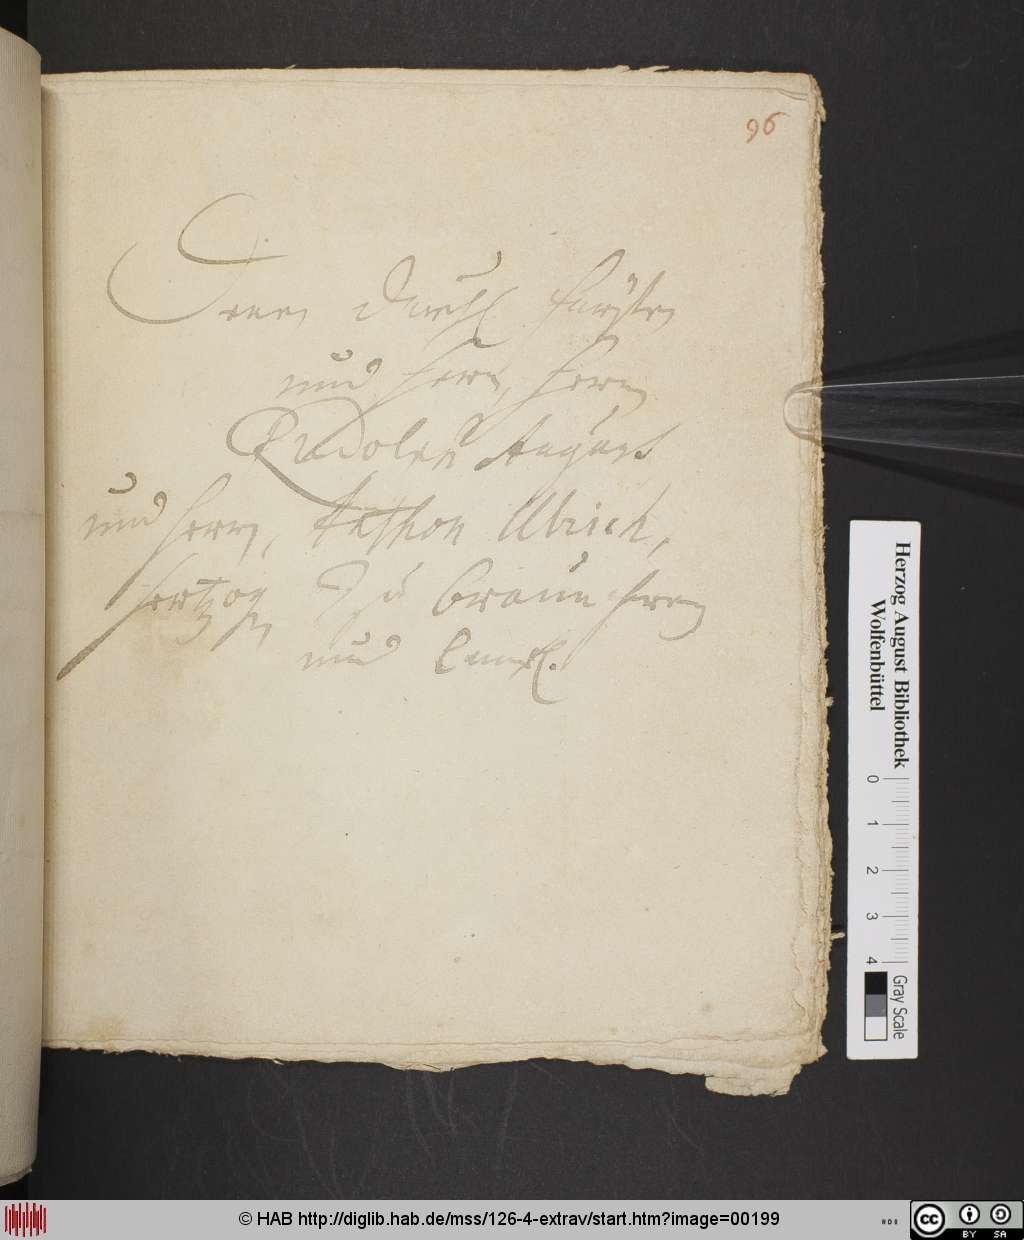 96
Denen Durchl. Fürsten
und Herrn, Herrn
Rudolff August
und Herrn, Anthon Ulrich,
Hertzogen Zu Braunschweig
und Lüneb.
Herzog August Bibliothek
Wolfenbüttel
0 1 2 3 4
Gray Scale
© HAB http://diglib.hab.de/mss/126-4-extrav/start.htm?image=00199
cc BY SA